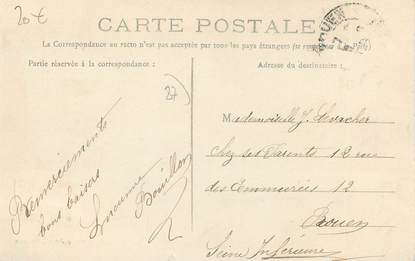 20€
CARTE POSTALE
La Correspondance au recto n'est pas acceptée par tous les pays étrangers (se renseigner à la poste)
Partie réservée à la correspondance :
Adresse du destinataire :
27)
ROUEN
Remerciements
bons baisers
Lucienne
Bouillon
Mademoiselle J. Levacher
chez ses Parents 12 rue
des Emmurées 12
Rouen
Seine Inférieure